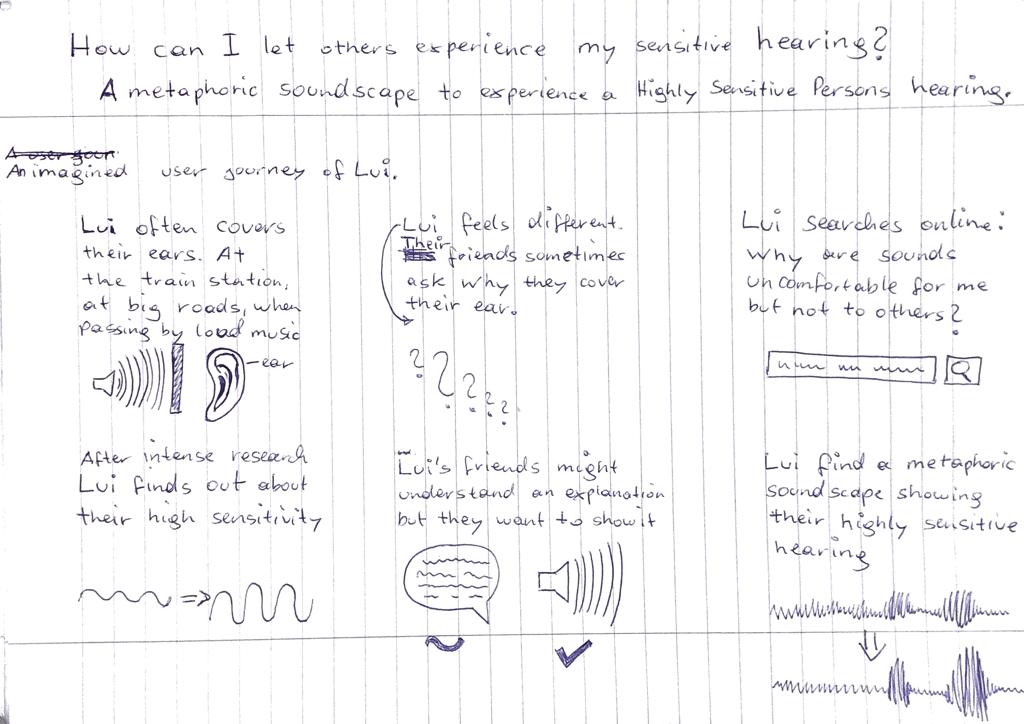 How can I let others experience my sensitive hearing?
A metaphoric soundscape to experience a Highly Sensitive Persons hearing.
An imagined user journey of Lui.
Lui often covers
their ears. At
the train station,
at big roads, when
passing by load music
ear
Lui feels different.
Their friends sometimes
ask why they cover
their ear.
? ? ? ? ?
Lui searches online:
Why are sounds
uncomfortable for me
but not to others?
After intense research
Lui finds out about
their high sensitivity
Lui's friends might
understand an explanation
but they want to show it
Lui find a metaphoric
soundscape showing
their highly sensitive
hearing